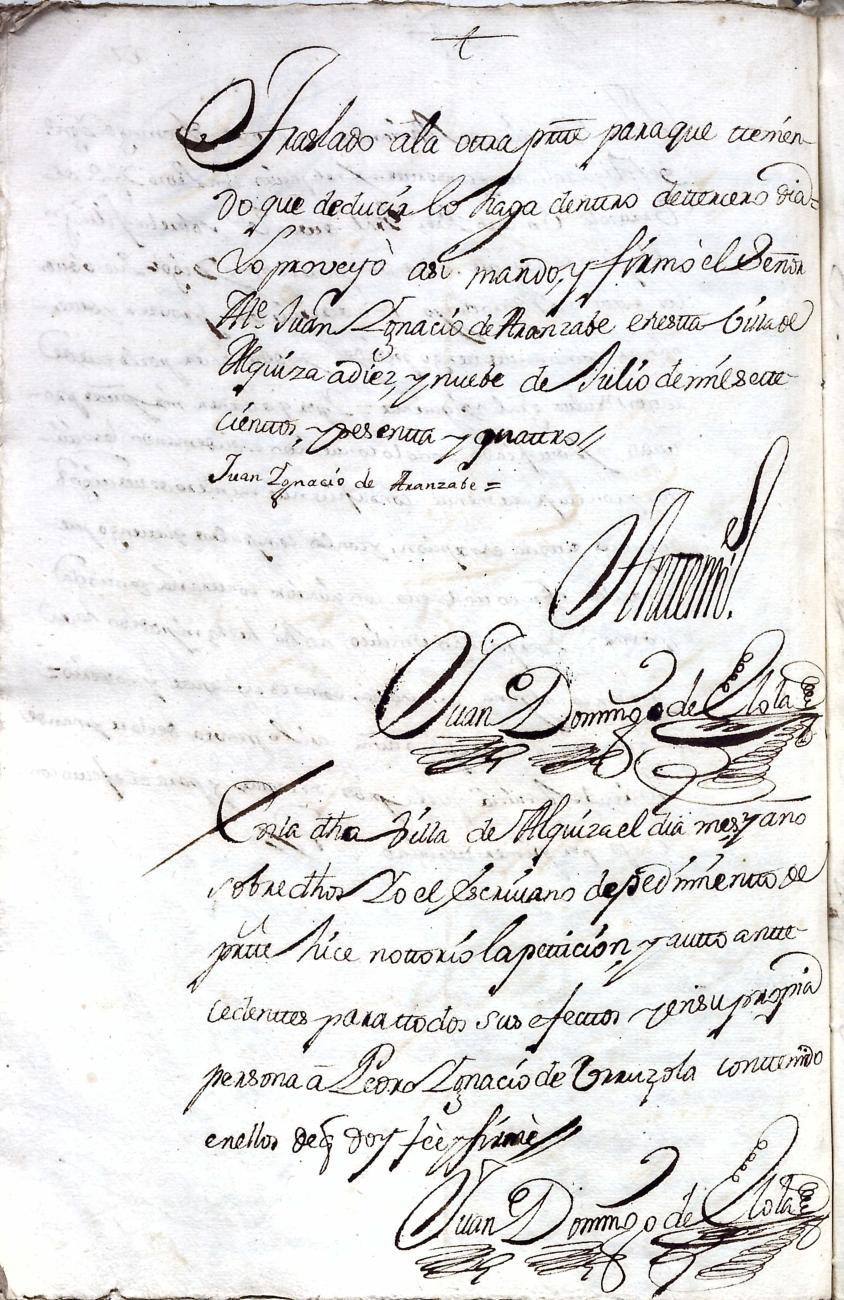 +
Traslado ala otra prtte paraque ttenien-
do que deducir lo haga denttro dettercero dia=
Lo proveyò asi mando, y firmò el Señor
Alle. Juan Ygnacio de Aranzabe enestta Villa de
Alquiza a diez, y nuebe de Julio demil sette-
cienttos, y sesentta y quattro//
Juan Ygnacio de Aranzabe=
Anttemi.
Juan Domingo de Olola
Enla dha Villa de Alquiza el dia mes, y año
sobredhos Yo el Escrivano depedimientto de
prtte hice nottorio la petticion, y autto antte-
cedenttes para ttodos sus efecttos y ensu propia
persona â Pedro Ygnacio de Urruzola conttenido
enellos deq doy feè y firmè//
Juan Domingo de Olola